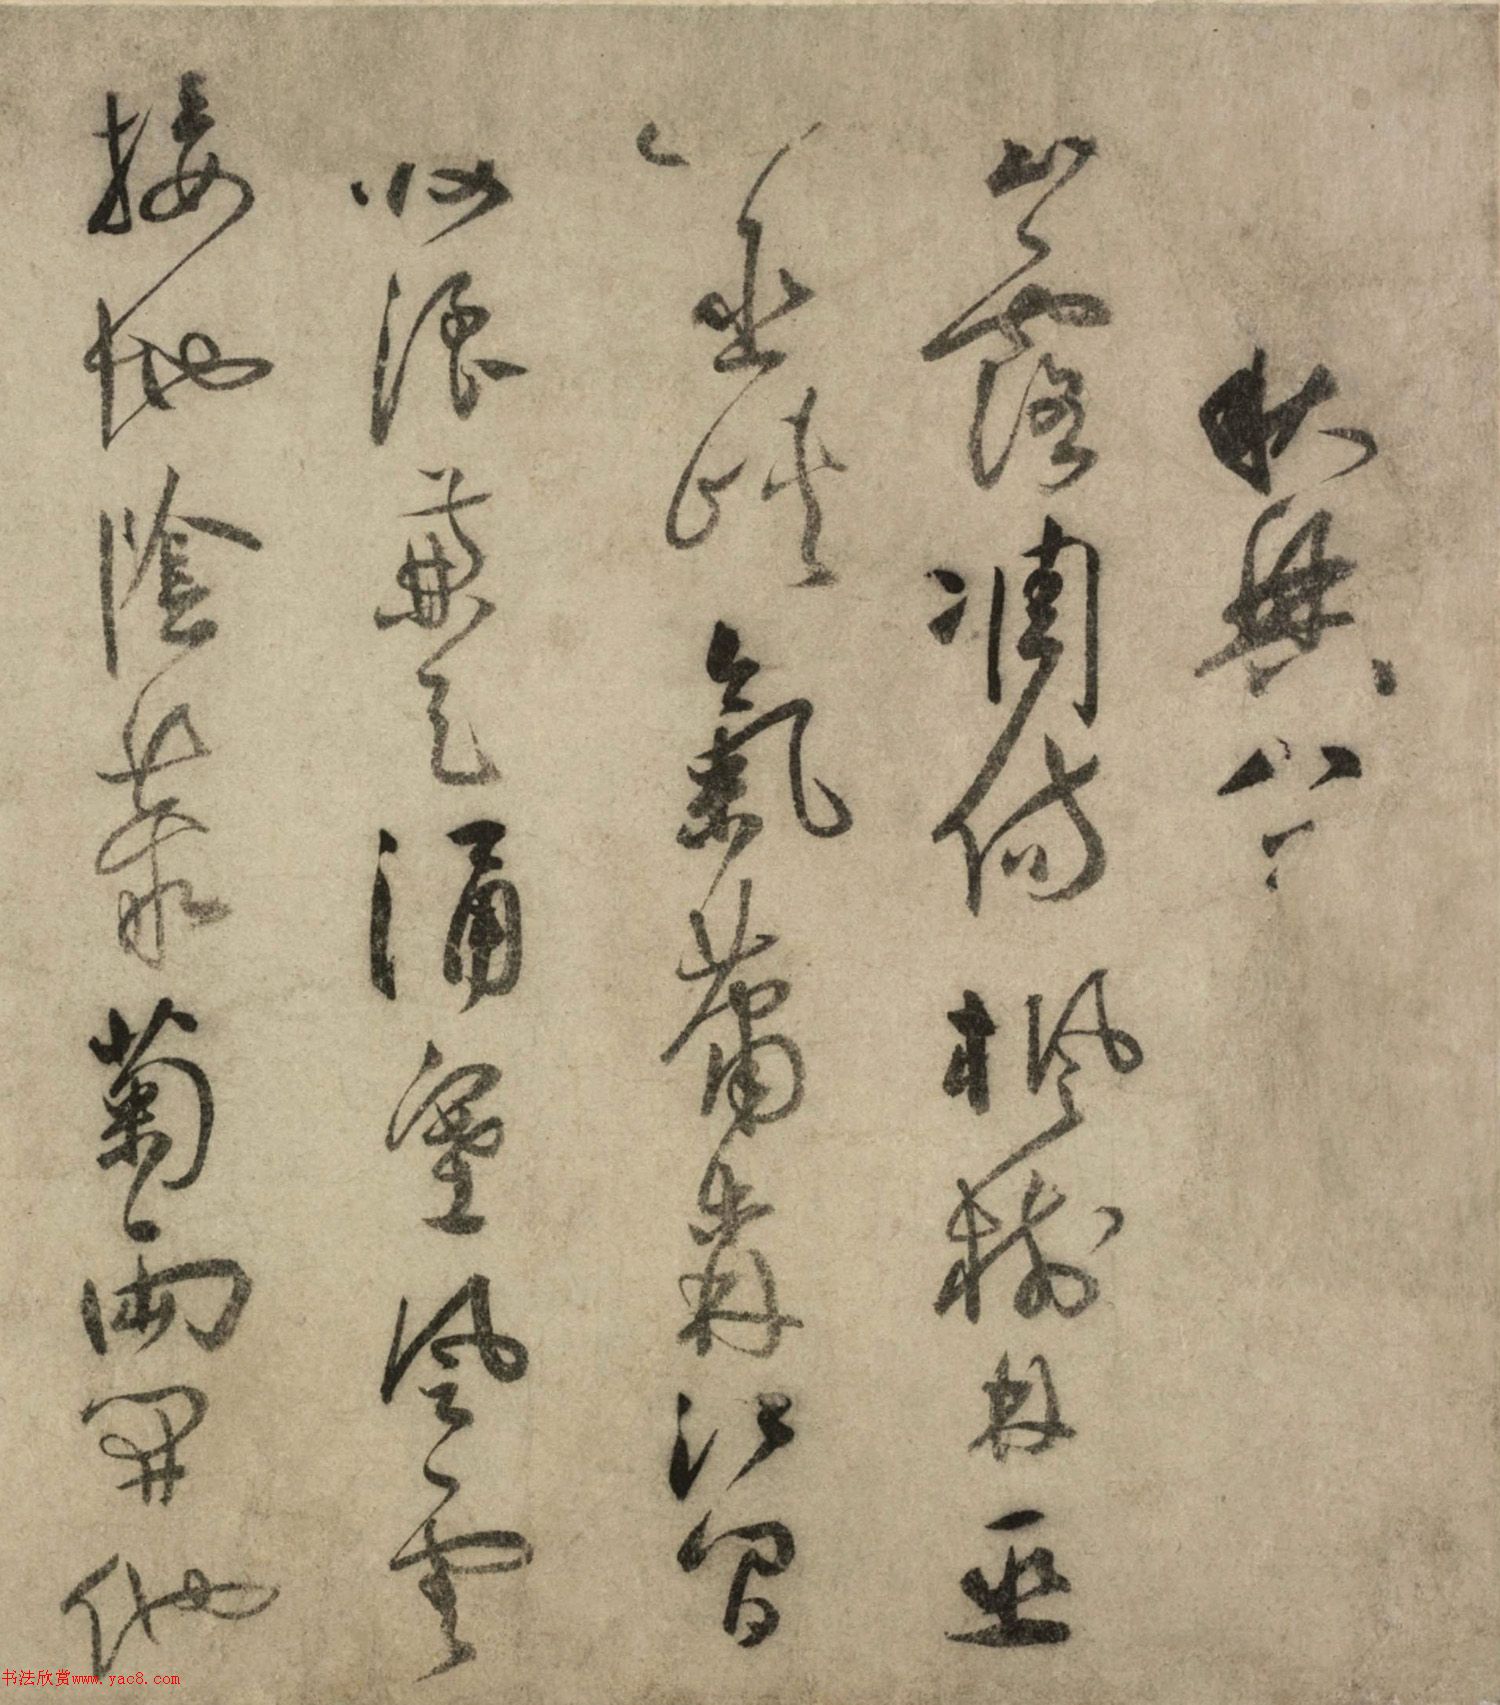 秋興八
玉露凋傷楓樹林巫
山巫峽氣蕭森江間
波浪兼天涌塞上風雲
接地陰叢菊兩開他
书法欣赏www.yac8.com